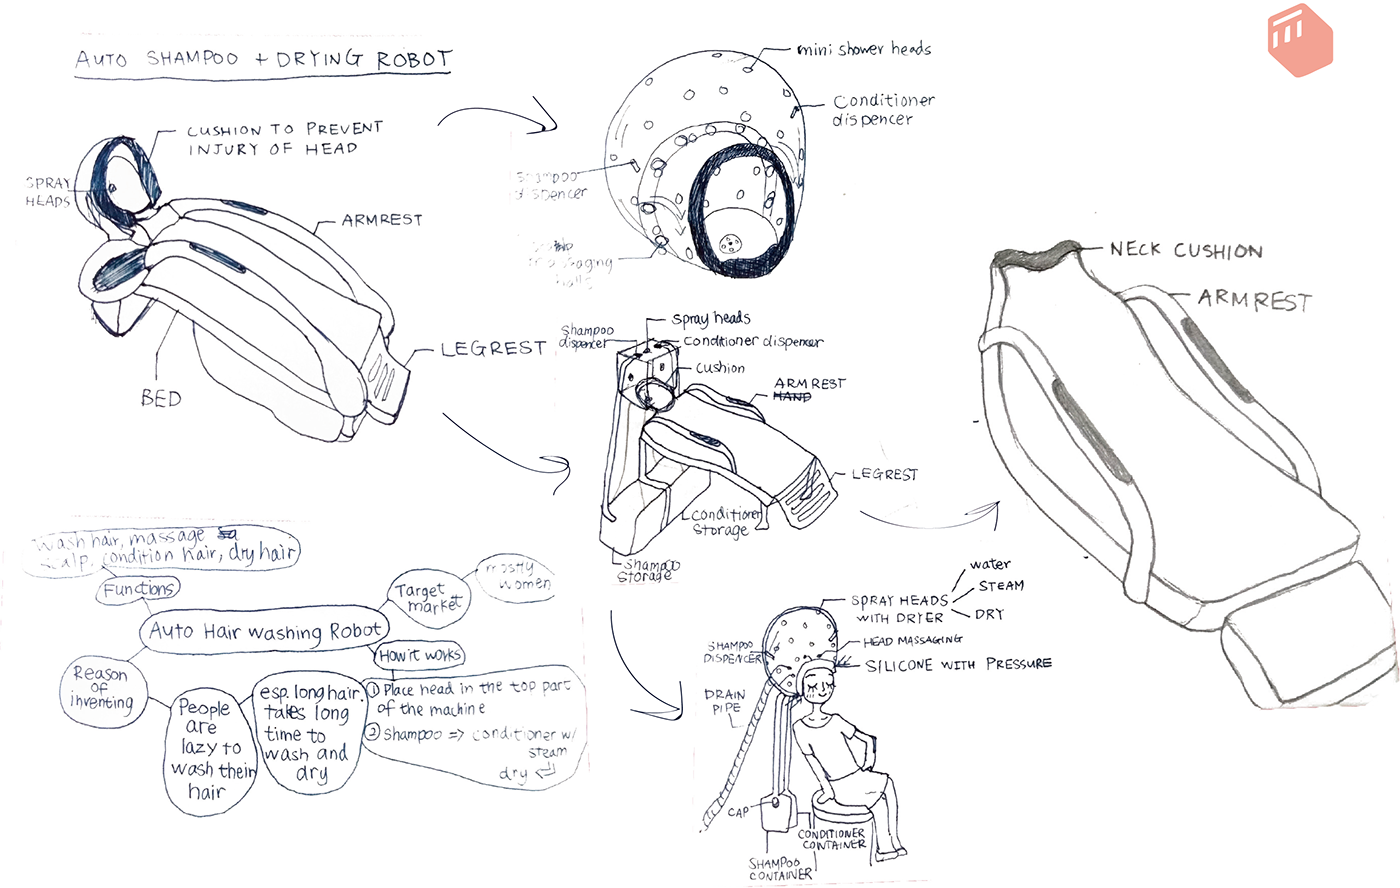 AUTO SHAMPOO + DRYING ROBOT
CUSHION TO PREVENT
INJURY OF HEAD
SPRAY
HEADS
ARMREST
LEGREST
BED
mini shower heads
Conditioner
dispencer
Shampoo
dispencer
massaging
balls
Spray heads
Shampoo
dispencer
Conditioner dispencer
cushion
ARMREST
HAND
LEGREST
Conditioner
Storage
Shampoo
Storage
NECK CUSHION
ARMREST
wash hair, massage
scalp, condition hair, dry hair
Functions
Target
market
mostly
women
Auto Hair washing Robot
How it works
Reason
of
inventing
People
are
lazy to
wash their
hair
esp. long hair
takes long
time to
wash and
dry
① Place head in the top part
of the machine
② Shampoo => conditioner w/
steam
dry <=
water
SPRAY HEADS
WITH DRYER
STEAM
DRY
SHAMPOO
DISPENCER
HEAD MASSAGING
SILICONE WITH PRESSURE
DRAIN
PIPE
CAP
CONDITIONER
CONTAINER
SHAMPOO
CONTAINER